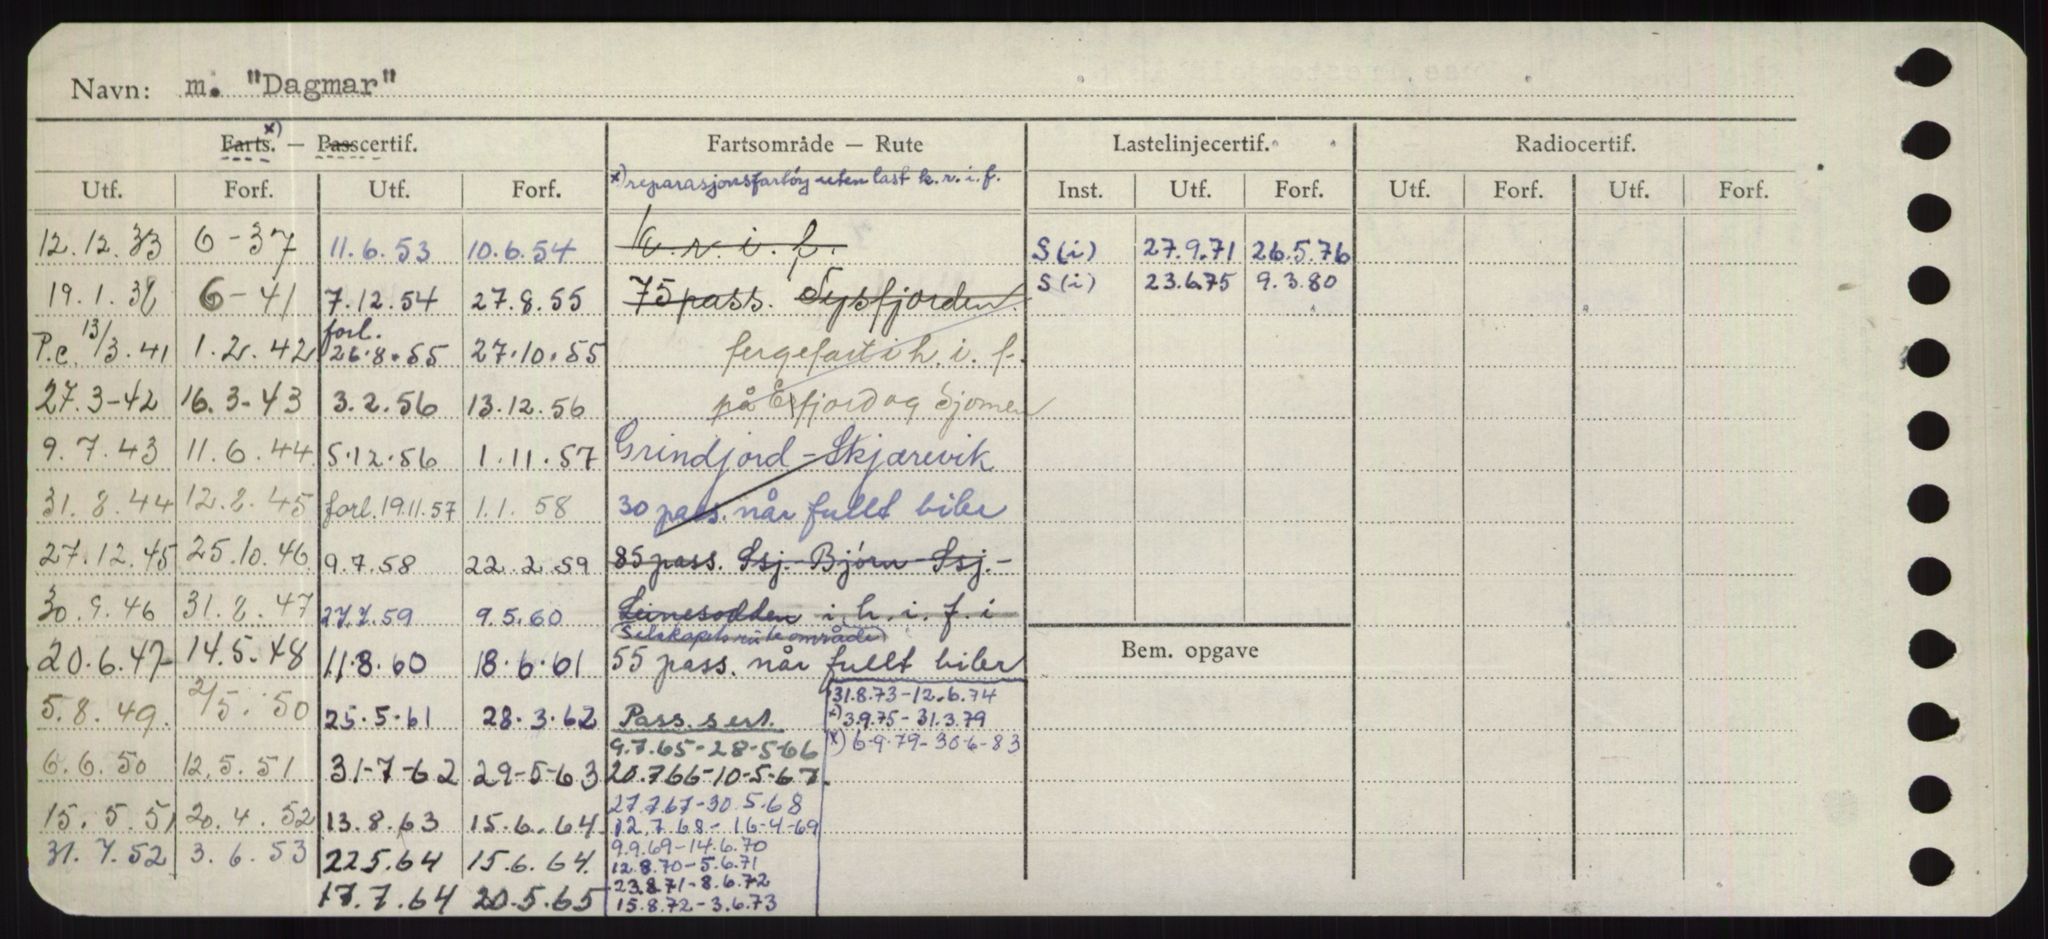 Navn: m. "Dagmar"
Farts. x) — Passcertif. Fartsområde — Rute Lastelinjecertif. Radiocertif.
x) reparasjonsfartøy uten last k.r.i.f.
Utf. Forf. Utf. Forf. Inst. Utf. Forf. Utf. Forf. Utf. Forf.
12.12.33 6-37 11.6.53 10.6.54 k.r.i.f. S(i) 27.9.71 26.5.76
19.1.38 6-41 7.12.54 27.8.55 75 pass. Tysfjorden. S(i) 23.6.75 9.3.80
P.c. 13/3.41 1.2.42 forl. 26.8.55 27.10.55 fergefart i h.i.f.
27.3-42 16.3-43 3.2.56 13.12.56 på Efjord og Sjomen
9.7.43 11.6.44 5.12.56 1.11.57 Grindjord - Skjærevik
31.8.44 12.8.45 forl. 19.11.57 1.1.58 30 pass. når fullt biler
27.12.45 25.10.46 9.7.58 22.2.59 85 pass. Ssj.- Bjørn - Ssj.-
30.9.46 31.8.47 27.7.59 9.5.60 Leinesodden i h.i.f. i
Selskapets ruteområde
20.6.47 14.5.48 11.8.60 18.6.61 55 pass. når fullt biler
Bem. opgave
31.8.73-12.6.74
5.8.49. 2/5.50 25.5.61 28.3.62 Pass. sert. x) 3.9.75-31.3.79
9.7.65-28-5-66 x) 6-9-79-30-6-83
6.6.50 12.5.51 31-7-62 29-5-63 20.7.66-10-5-67.
27.7.67-30.5.68
15.5.51 20.4.52 13.8.63 15.6.64 12.7.68-16-4-69
9.9.69-14.6.70
31.7.52 3.6.53 22.5.64 15.6.64. 12.8.70-5.6.71
23.8.71-8.6.72
17.7.64 20.5.65 15.8.72-3.6.73